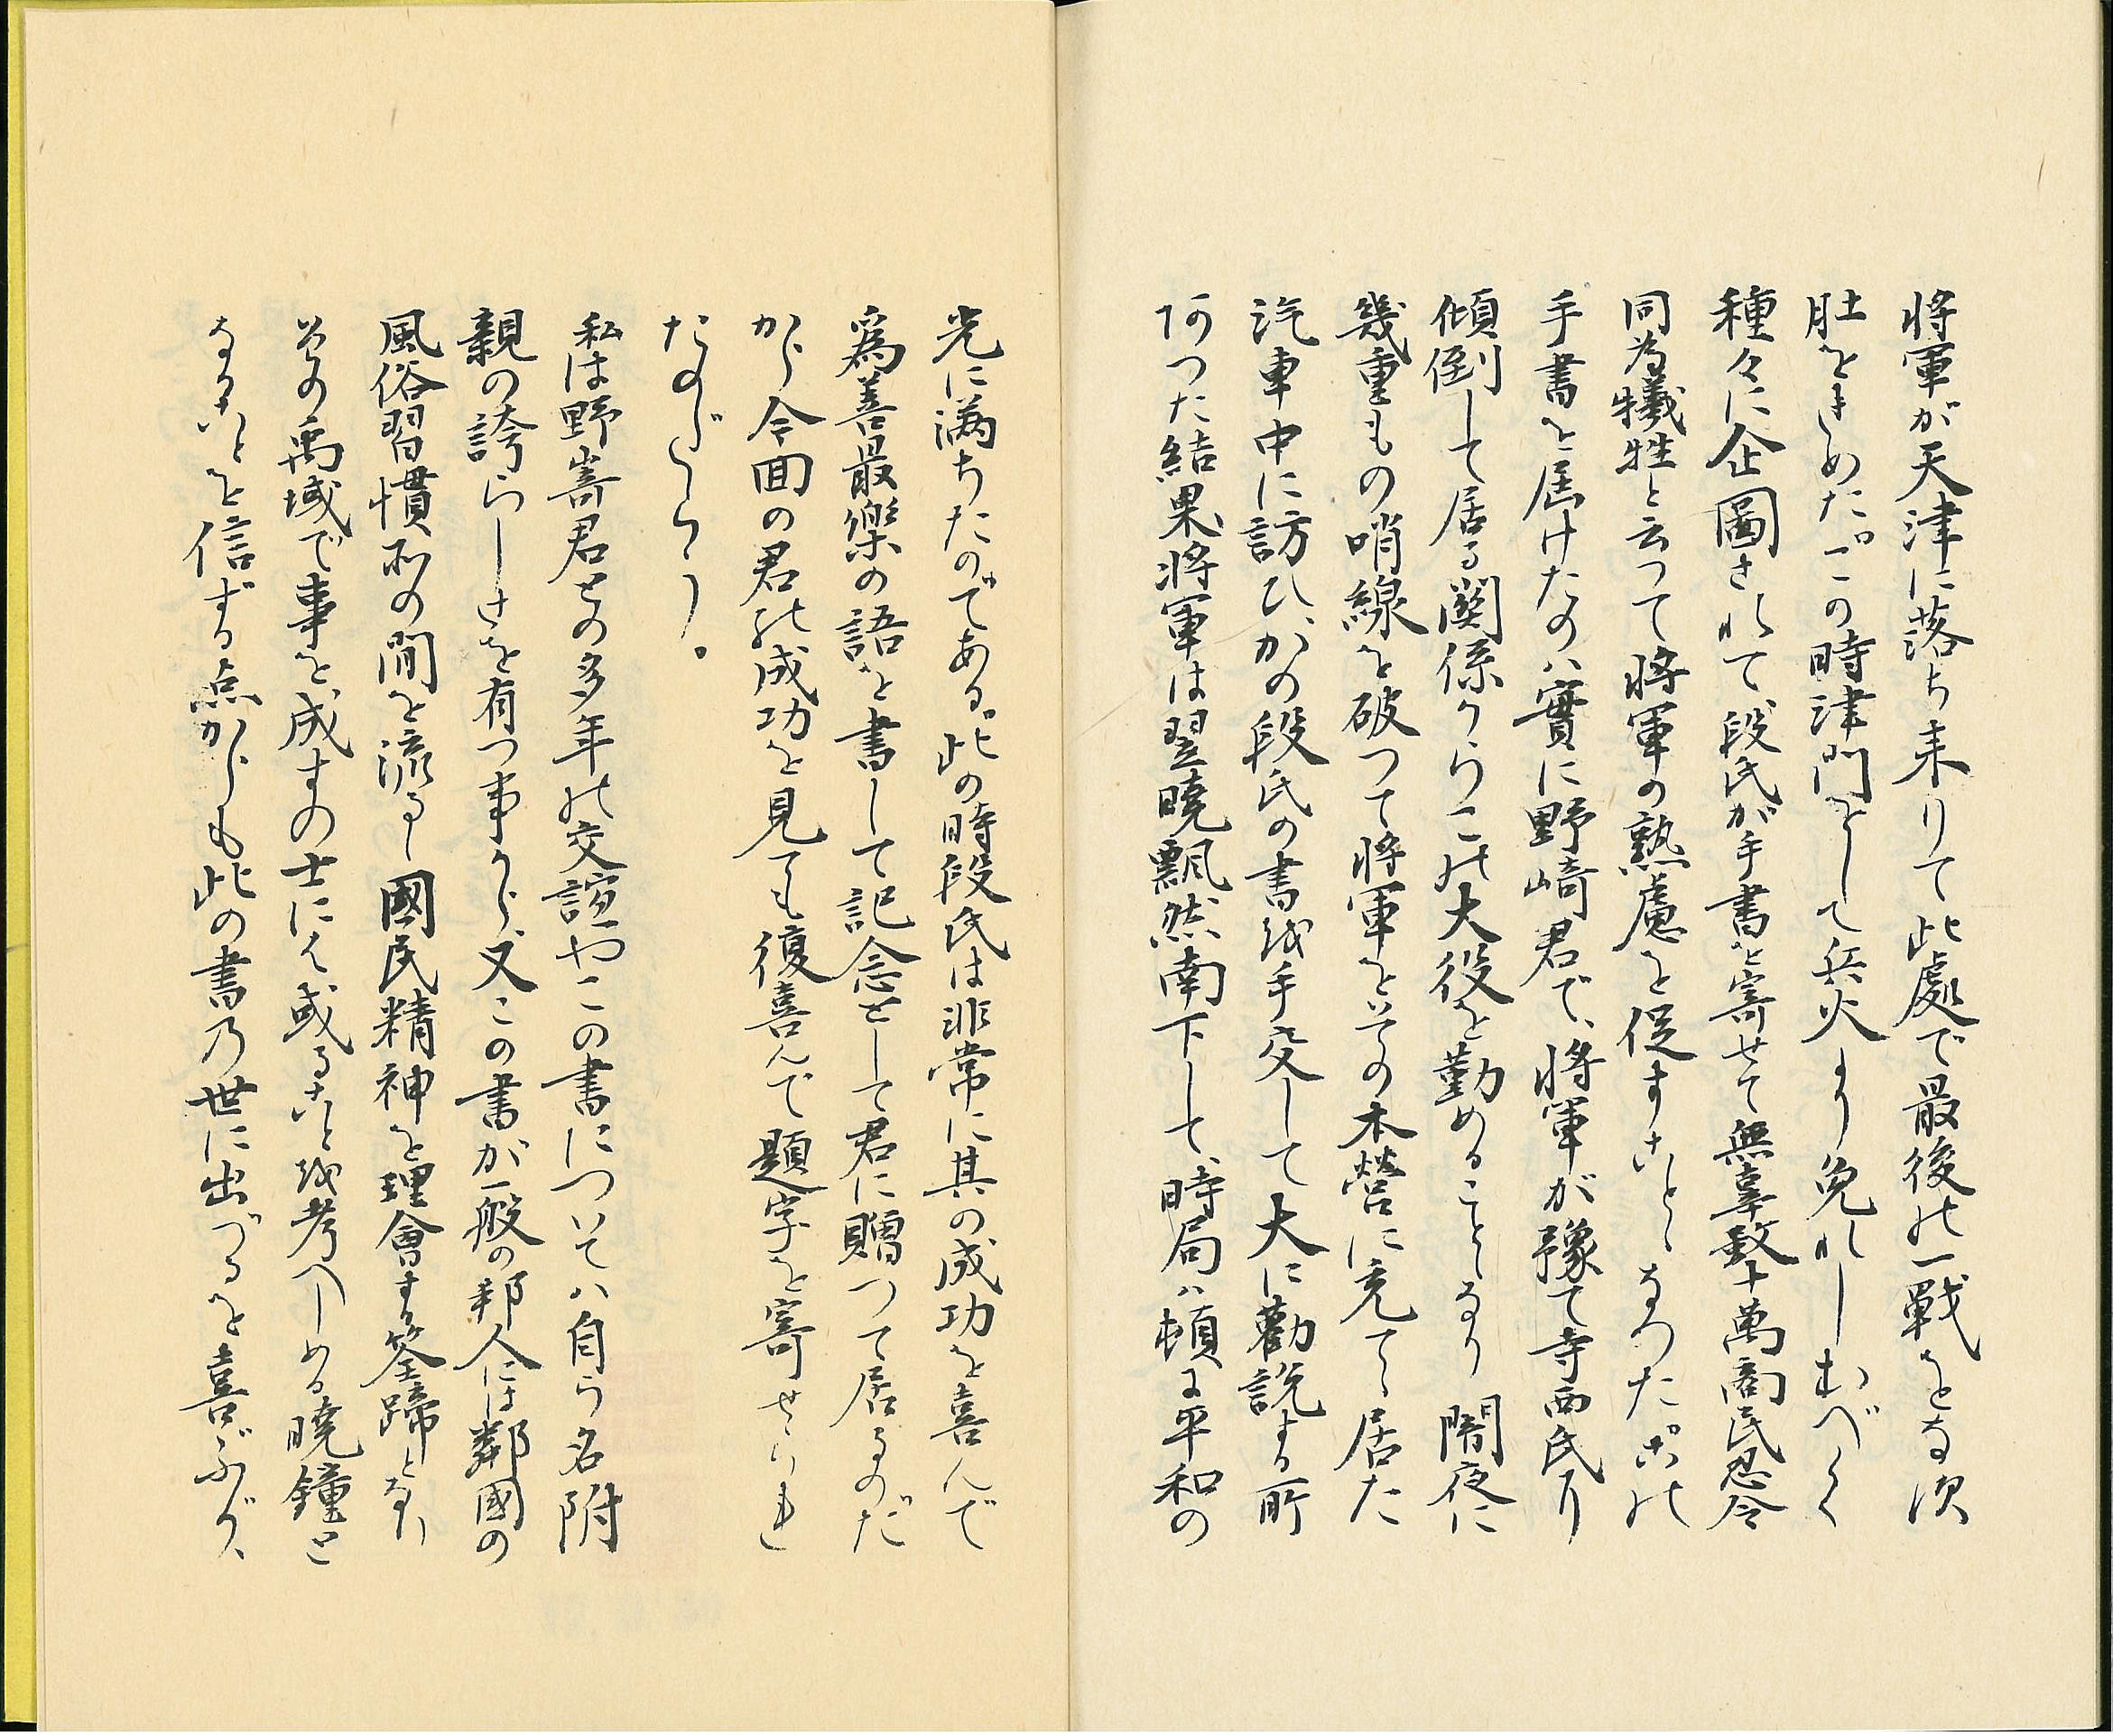 将軍が天津に落ち来りて此處で最後の一戰をなす
肚をきめた。この時津門をして兵火より免れしむべく
種々に企圖されて、段氏が手書を寄せて無辜數十萬商民忍令
同為犠牲と云つて将軍の熟慮を促すこととなつた。この
手書を届けたのハ實に野﨑君で、将軍が豫て寺西氏に
傾倒して居る関係からこの大役を勤めることゝなり 闇夜に
幾重もの哨線を破つて将軍をその本營に充てゝ居た
汽車中に訪ひ、かの段氏の書を手交して大に勸説する所
あつた結果将軍は翌曉飄然南下して、時局ハ頓に平和の
光に満ちたのである。此の時段氏は非常に其の成功を喜んで
爲善最樂の語を書して記念として君に贈つて居るのだ
から今回の君の成功を見ても復喜んで題字を寄せられ
たのだらう。
私は野﨑君との多年の交誼やこの書についてハ自ら名附
親の誇らしさを有つ事から、又この書が一般の邦人には鄰國の
風俗習慣の間を流るゝ國民精神を理會する筌蹄となり
その禹域で事を成すの士には或ることを考へしめる曉鐘と
なることを信ずる点からも此の書の世に出づるを喜ぶが、